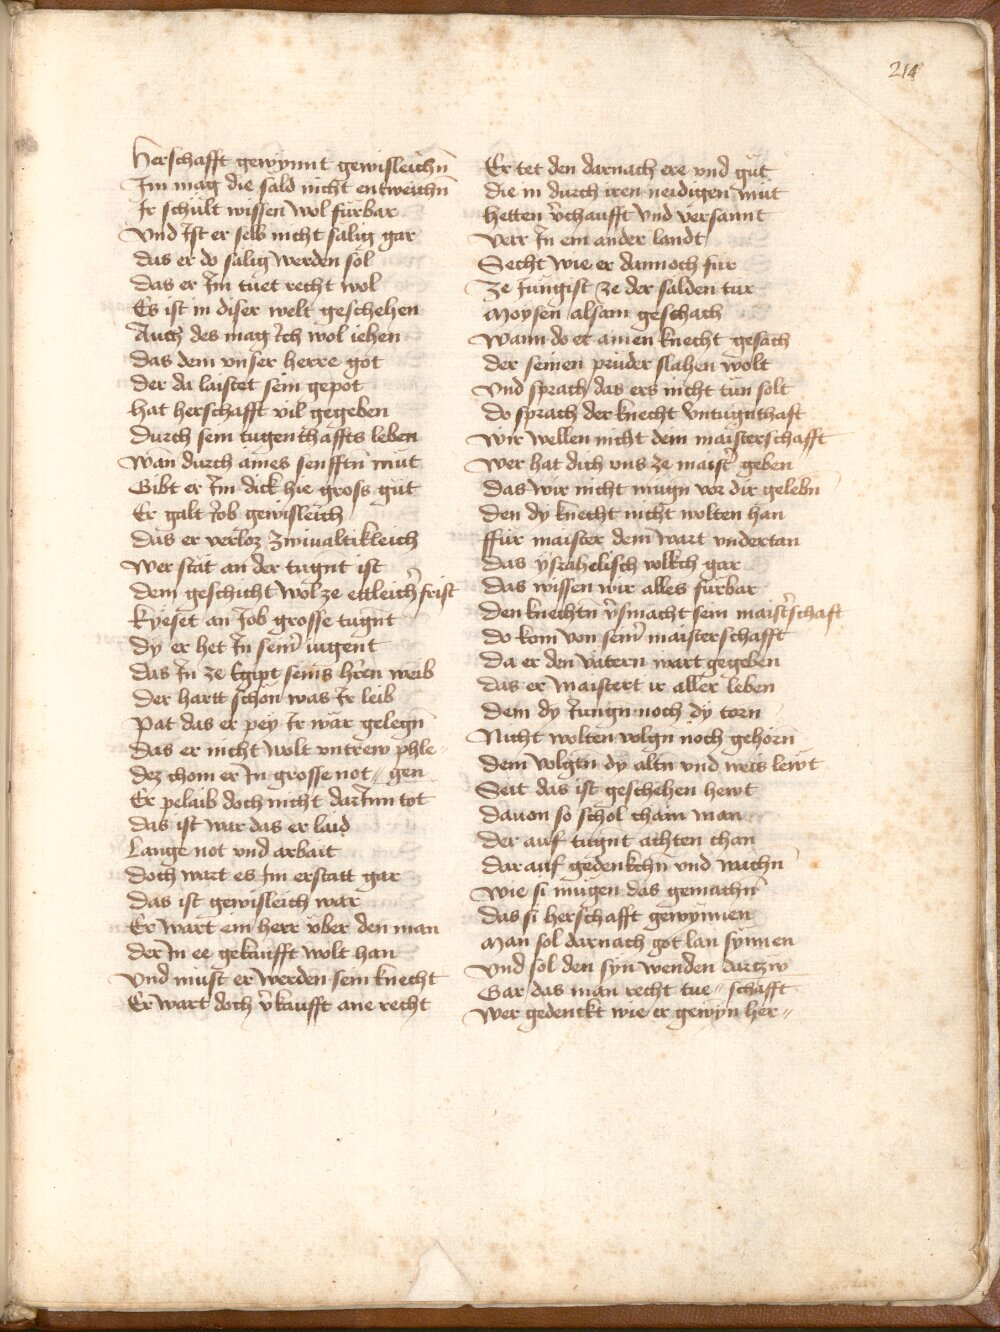 214
Herschafft gewynnt gewisleichn̄
Im mag die sald nicht entweichn̄
Ir schult wissen wol furbar
Vnd Ist er selb nicht salig gar
das er do salig werden sol
das er Im tuet recht wol
Es ist in diser welt geschehen
Auch des mag ich wol iehen
das dem vnser herre got
der da laistet sein gepot
hat herschafft vil gegeben
Durch sein tugenthaffts leben
Wan durch aines senfftn̄ mut
Gibt er Im dick hie gross gut
Er galt Job gewisleich
das er verloz zwiualtikleich
Wer stat an der tugnt ist
dem geschicht wol ze ettleicher frist
Kyeset an Job grosse tugnt
dy er het In seinr̄ iugent
das In ze Egipt seins hr̄en weib
der hartt schon was Ir leib
Pat das er pey Ir war gelegn̄
das er nicht wolt vntrew phle
dez chom er In grosse not // gen
Er pelaib doch nicht darInn tot
das ist war das er laid
Lange not vnd arbait
doch wart es Im erstatt gar
das ist gewisleich war
Er wart ein herr vber den man
der In ee gekaufft wolt han
Vnd must er werden sein knecht
Er wart doch v̄kaufft ane recht
Er tet den darnach ere vnd gut
die in durch iren neidigen mut
hetten v̄chaufft vnd versannt
verr In ein ander landt
Secht wie er dannoch fur
Ze Iungist ze der salden tur
Moysen alsam geschach
Wann do er ainen knecht gesach
der seinen pruder slahen wolt
Vnd sprach das ers nicht tun solt
do sprach der knecht vntugnthaft
Wir wellen nicht dein maisterschafft
Wer hat dich vns ze maistr̄ geben
das wir nicht mugn vor dir gelebn̄
den dy knecht nicht wolten han
ffur maister dem wart vndertan
das ysrahelisch volkch gar
das wissen wir alles furbar
den knechtn̄ v̄smacht sein maistr̄schaft
do kom von seinr̄ maisterschafft
Da er den vatern wart gegeben
das er maistert ir aller leben
dem dy Iungn noch dy torn
Nicht wolten volgn noch gehorn̄
dem volgtn dy altn vnd weis lewt
Seit das ist geschehen hewt
dauon so schol chain man
der auf tugnt achten chan
darauf gedenkchn̄ vnd wachn̄
wie si mugen das gemachn̄
das si herschafft gewynnen
Man sol darnach got lan synnen
Vnd sol den syn wenden dartzw
Gar das man recht tue // schafft
Wer gedenckt wie er gewyn her //